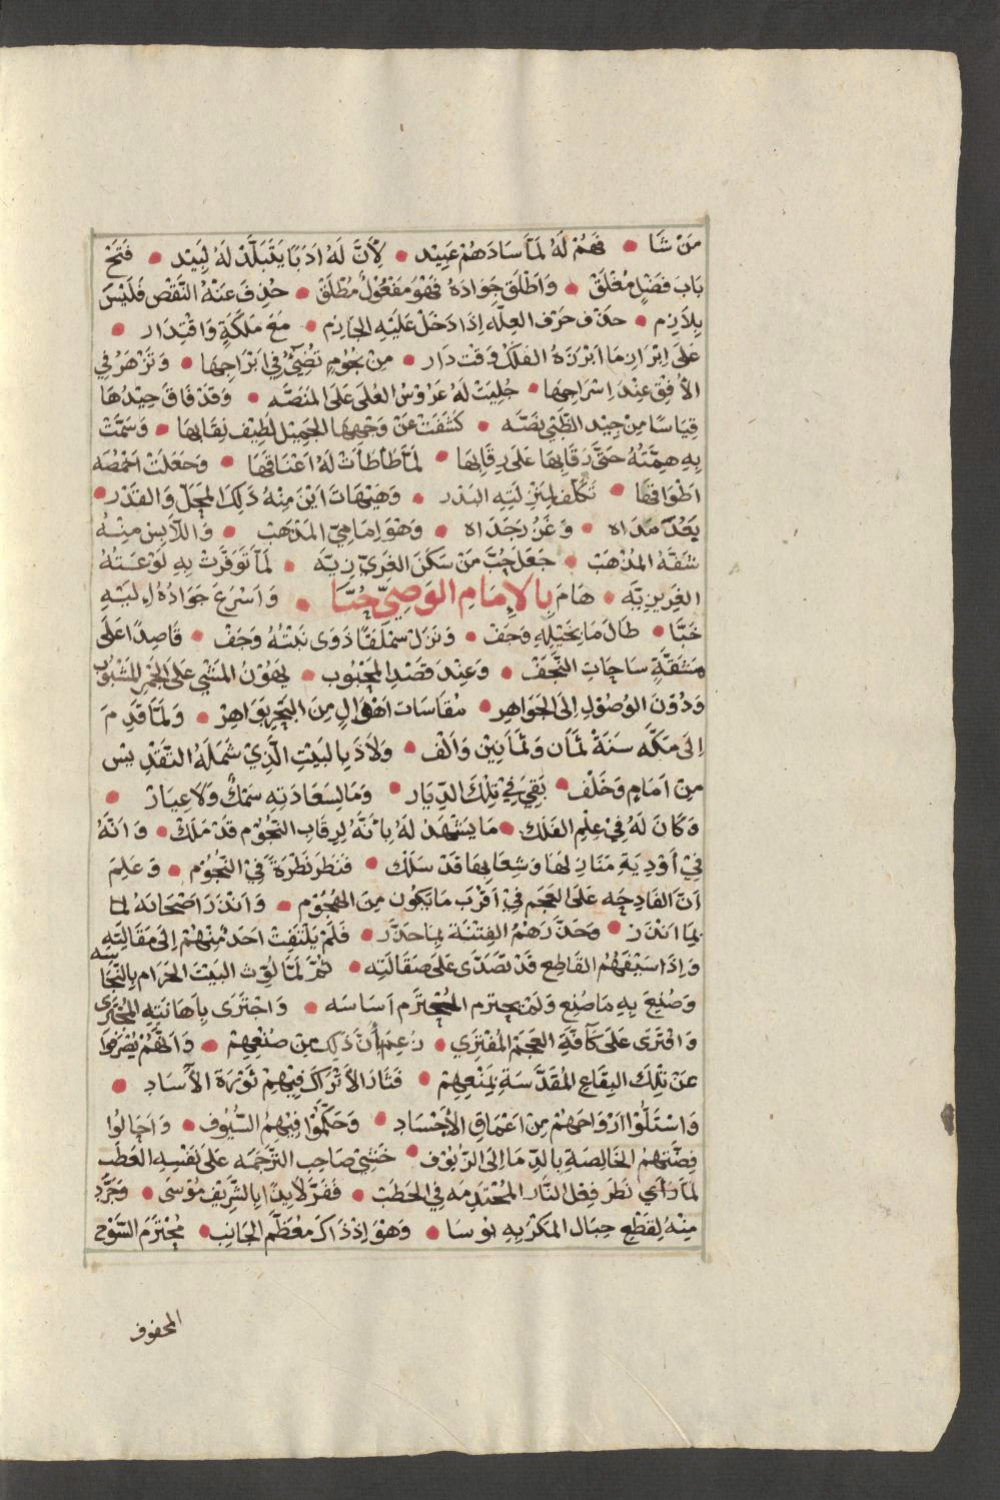 مَنْ شَا • فَهُمْ لَهُ لَمَّا سَادَهُمْ عَبِيْد • لِأَنَّ لَهُ اَدَبًا يَتَبَلَّدْ لَهُ لَبِيْد • فَتَحَ
بَابَ فَضْلٍ مُغْلَقْ • وَاَطْلَقَ جَوَادَهُ فَهْوَ مَفْعُوْلٌ مُطْلَقْ • حُذِفَ عَنْهُ النَّقْص فَلَيْسَ
بِلَازِم • حذف حَرْف العِلَّه اِذَا دَخَلَ عَلَيْهِ الجَازِم • مَعَ مَلَكَةٍ وَاقْتِدَار •
عَلَى اِبْرَازِ مَا اَبْرَزَهُ الفَلَكُ وَقْت دَار • مِنْ نجُومٍ تُضِيْئُ فِي اَبْرَاجِهَا • وَتَزْهَرُ فِي
الأُفقِ عِنْدَ اِسْرَاجِهَا • جُلِيَتْ لَهُ عَرُوْسُ العُلَى عَلَى المنَصَّه • وَقَدْ فَاقَ جِيْدُهَا
قِيَاسًا مِنْ جِيْد الظَّبْيِ نصَّه • كَشَفَتْ عَنْ وَجْهِهَا الجَمِيْل لَطِيْف نِقَابِهَا • وَسَمَتْ
بِهِ هِمَّتُهُ حَتَّى رَقَابِهَا عَلَى رِقَابِهَا • لَمَّا طَأطَأتْ لَهُ اَعْنَاقَهَا • وَجَعَلَتْ اخمُصَه
اَطْوَاقَهَا • تَكَلَّفَ لِمَنْزِلَتِهِ البَدْر • وَهَيْهَاتَ اَيْنَ مِنْهُ ذَلِكَ المَحَلّ وَالقَدْر •
بَعُدَ مَدَاه • وَغَزُرَ جَدَاه • وَهْوَ اِمَامِيّ المَذْهَبْ • وَاللَّابِس مِنْهُ
شقَّهُ المُذْهَبْ • جَعَلَ حُبَّ مَنْ سَكَنَ الغَرِيّ زِيّه • لَمَّا تَوَفَّرَتْ بِهِ لَوْعَتُهُ
الغَرِيْزِيّه • هَامَ بِالاِمَامِ الوَصِيِّ حُبًّا • وَاَسْرَعَ جَوَادُهُ اِلَيْهِ
خَبَّا • طَالَ مَا بِخَيْلِهِ وَجَفْ • وَنَزَلَ سَمْلَقًا ذَوَى نَبْتُهُ وَجَفْ • قَاصِدًا عَلَى
مشَقَّةٍ سَاحَاتِ النَّجَفْ • وَعِنْدَ قصْدِ المَحْبُوب • يَهُوْنُ المَشْي عَلَى الجَمْرِ المَشْبُوب
وَدُوْنَ الوُصُوْلِ اِلَى الجَوَاهِر • مُقَاسَات اَهْوَالٍ مِنَ البَحْرِ بَوَاهِر • وَلَمَّا قَدِمَ
اِلَى مَكَّه سَنَةْ ثَمَان وَثَمَانِيْنَ وَالْف • وَلاَذَ بِالبَيْتِ الَّذِيْ شَمَلَهُ التَّقْدِيس
مِنْ اَمَامٍ وَخَلْف • بَقِيَ فِيْ تِلْكَ الدِّيَار • وَمَا لِسَعَادَتِهِ سَمْكٌ وَلَا عِيَار •
وَكَانَ لَهُ فِيْ عِلْمِ الفَلَك • مَا يَشْهَدُ لَهُ بِانَّهُ لِرِقَابِ النُّجُوْم قَدْ مَلَكْ • وَاَنَّهُ
فِيْ اَوْدِيَةِ مَنَازِلهَا وَشِعَابِهَا قَدْ سَلَكْ • فَنَظَرَ نَظْرَةً فِيْ النُّجُوْم • وَعَلِمَ
اَنَّ الفَادِحَه عَلَى العَجَم فِيْ اَقْرَب مَا يَكُون مِنَ الهُجُوْم • وَاَنْذَرَ اَصْحَابَهُ لمّا
بِمَا اَنْذَر • وَحَذَّرَهُمُ الفِتْنَة بِمَا حَذَّر • فَلَمْ يَلْتَفِتْ اَحَدٌ مِنْهُمْ اِلَى مَقَالتِهِ
وَاِذَا سَيْفهُم القَاطِع قَدْ تَصَدَّى عَلَى صقَالَتِه • ثُمَّ لَمَّا لُوِّث البَيْت الحَرَام بِالنَّجَاسه
وَصُنِعَ بِهِ مَا صُنِع وَلَمْ يحترم المُحْتَرَم اَسَاسَه • وَاجْتَرَى بِاهَانَتِهِ المُجْتَرِى
وَافْتَرَى عَلَى كَافَّةِ العَجَم المُفْتَرِي • زُعِمَ أَنَّ ذَلِكَ مِن صُنْعِهِمْ • وَاَنَّهُمْ يُصْرَفُوا
عَنْ تِلْكَ البِقَاعِ المُقَدَّسَةِ بِمَنْعِهِمْ • فَثَارَ الأتْرَاكُ فِيْهِمْ ثَوْرَة الأُسَاد •
وَاسْتَلُّوْا اَرْوَاحَهُمْ مِنْ اَعْمَاقِ الأَجْسَاد • وَحَكَّمُوْا فِيْهِمُ السُّيُوف • وَاَحَالُوا
فِضَّتهُم الخَالِصَةِ بالدِّمَا اِلَى الزُّيُوْف • خَشِيَ صَاحِب التَّرْجَمَه عَلَى نَفْسِهِ العَطَب
لَمَا رَاَى نَظَر فِعْل النَّار المُحْتَدِمَه فِي الحَطَبْ • فَفَرَّ لاَئِذًا بِالشَّرِيْف مُوْسَى • وَجَرَّدَ
مِنْهُ لِقَطْعِ حِبَال المَكْرِ بِهِ مُوْسَا • وَهْوَ اِذْ ذَاكَ مُعَظَّم الجَانِب • مُحْتَرَم السُّوْح
المحفوف